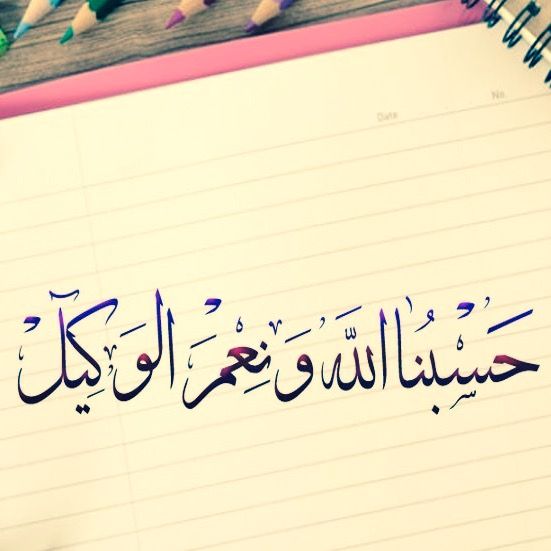 Date
No.
حَسْبُنَا اللَّهُ وَنِعْمَ الوَكِيلْ